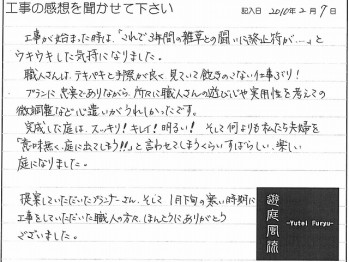 工事の感想を聞かせて下さい
記入日 2010年2月9日
工事が始まった時は、「これで3年間の雑草との闘いに終止符が…」と
ウキウキした気持になりました。
職人さんは、テキパキと手際が良く見ていて飽きのこない仕事ぶり!
プランに忠実でありながら、所々に職人さんの遊び心や実用性を考えての
微調整など心遣いがうれしかったです。
完成した庭は、スッキリ!キレイ!明るい! そして何よりも私たち夫婦を
「意味無く、庭に出てしまう!!」と言わせてしまうくらいすばらしい、楽しい
庭になりました。
提案していただいたプランナーさん、そして1月下旬の寒い時期に
工事をしていただいた職人の方々、ほんとうにありがとう
ございました。
遊庭風流
-Yutei Furyu-